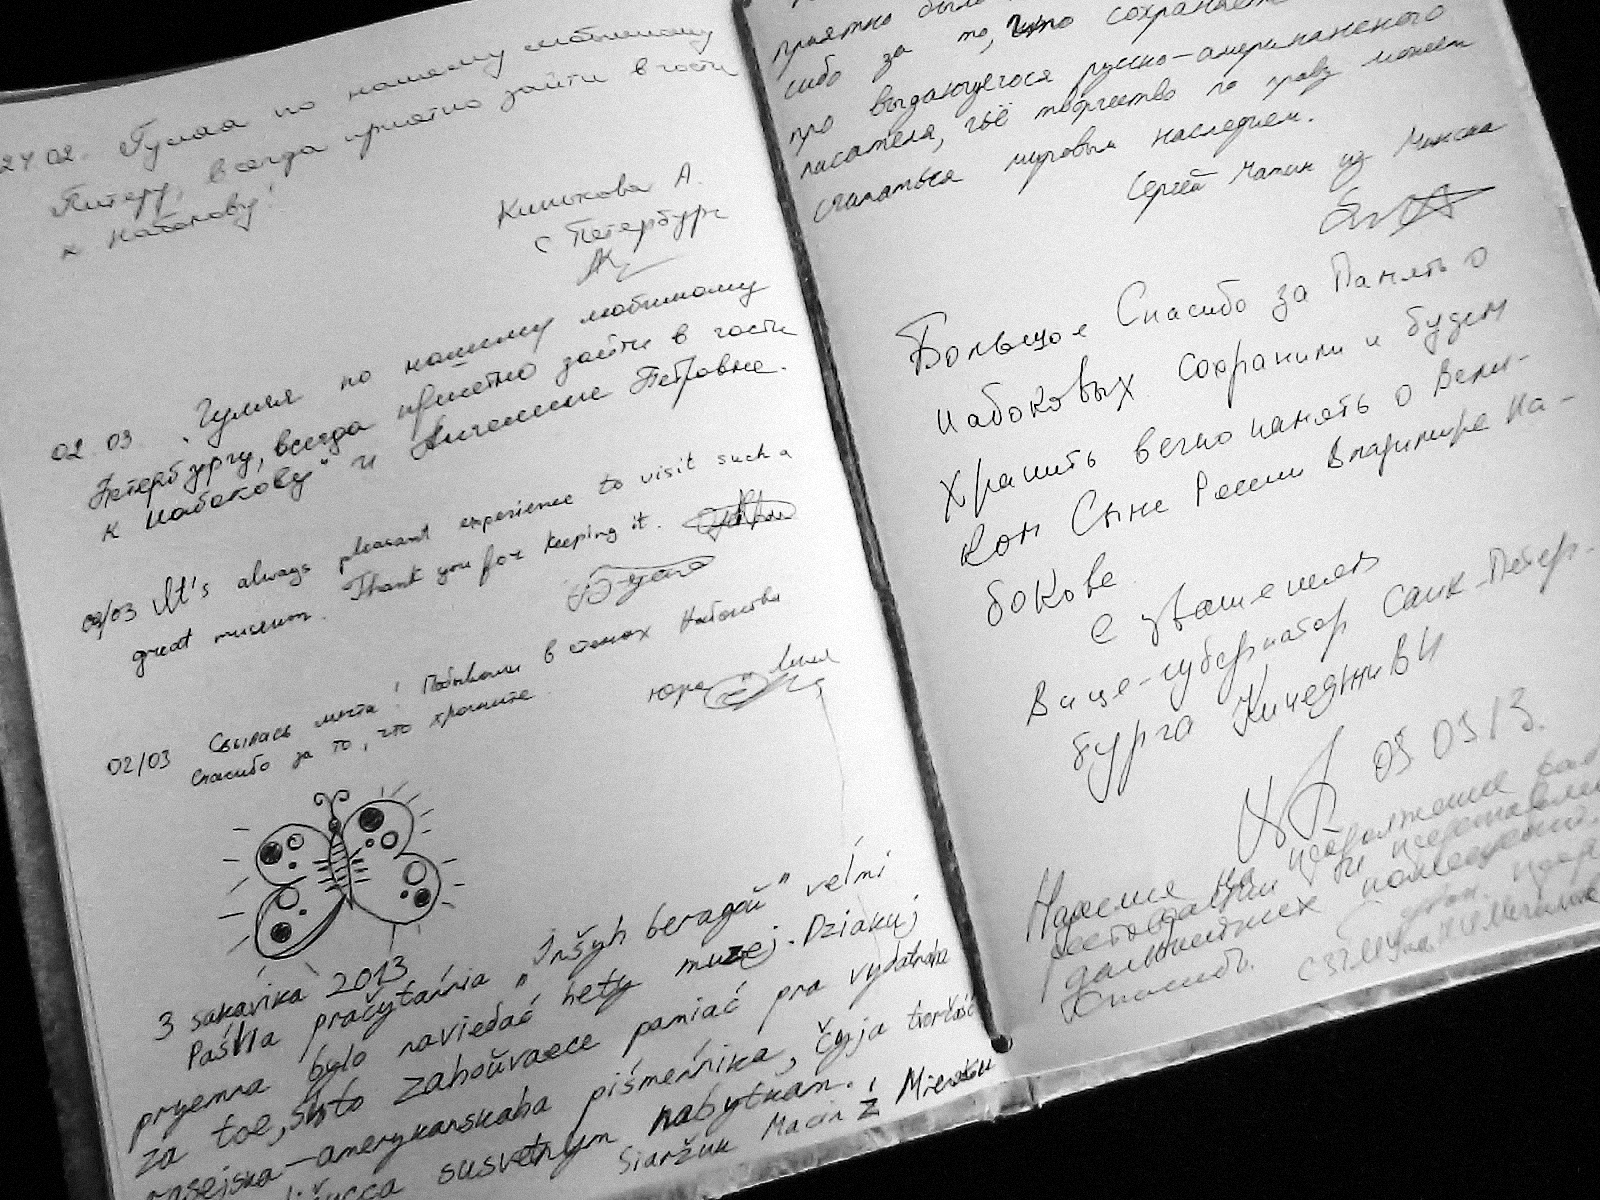 24 02. Гуляя по нашему любимому
Питеру, всегда приятно зайти в гости
к Набокову!
Кишкова А.
с Петербург
02.03 Гуляя по нашему любимому
Петербургу, всегда приятно зайти в гости
к Набокову" и Ангелине Петровне.
02/03 It's always pleasant experience to visit such a
great museum. Thank you for keeping it.
02/03 Сбылась мечта! Побывали в стенах Набокова
Спасибо за то, что храните.
Юра и
3 sakavika 2013
Paśla pračytańnia „Inšyh beragoŭ" veĺmi
pryemna bylo naviedać hety muzej. Dziakuj
za toe, što zahoŭvaece pamiać pra vydatnaha
rasejska-amerykanskaha piśmeńnika, čyja tvorčaść
susvetnym nabytkam.
Siaržuk Macin z Miensku
приятно было
сибо за то, что сохраняете
про выдающегося русско-американского
писателя, чьё творчество по праву может
считаться мировым наследием.
Сергей Матин из Минска
Большое Спасибо за Память о
Набоковых сохранили и будем
хранить вечно память о Вели-
ком Сыне России Владимире На-
бокове
С уважением
Вице-губернатор Санк-Петер-
бурга Кичеджи В И
05 03 13.
Надеемся на продолжение
реставрации и
дальнейших помещений.
Спасибо.